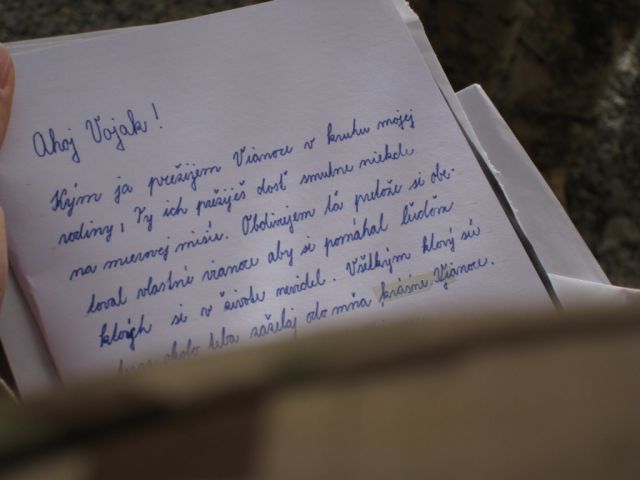 Ahoj Vojak!
Kým ja prežijem Vianoce v kruhu mojej
rodiny, Ty ich prežiješ dosť smutne niekde
na mierovej misíi. Obdivujem ťa pretože si obe-
toval vlastné vianoce aby si pomáhal ľuďom
ktorých si v živote nevidel. Všetkým ktorý sú
okolo teba zaželaj odo mňa krásne Vianoce.